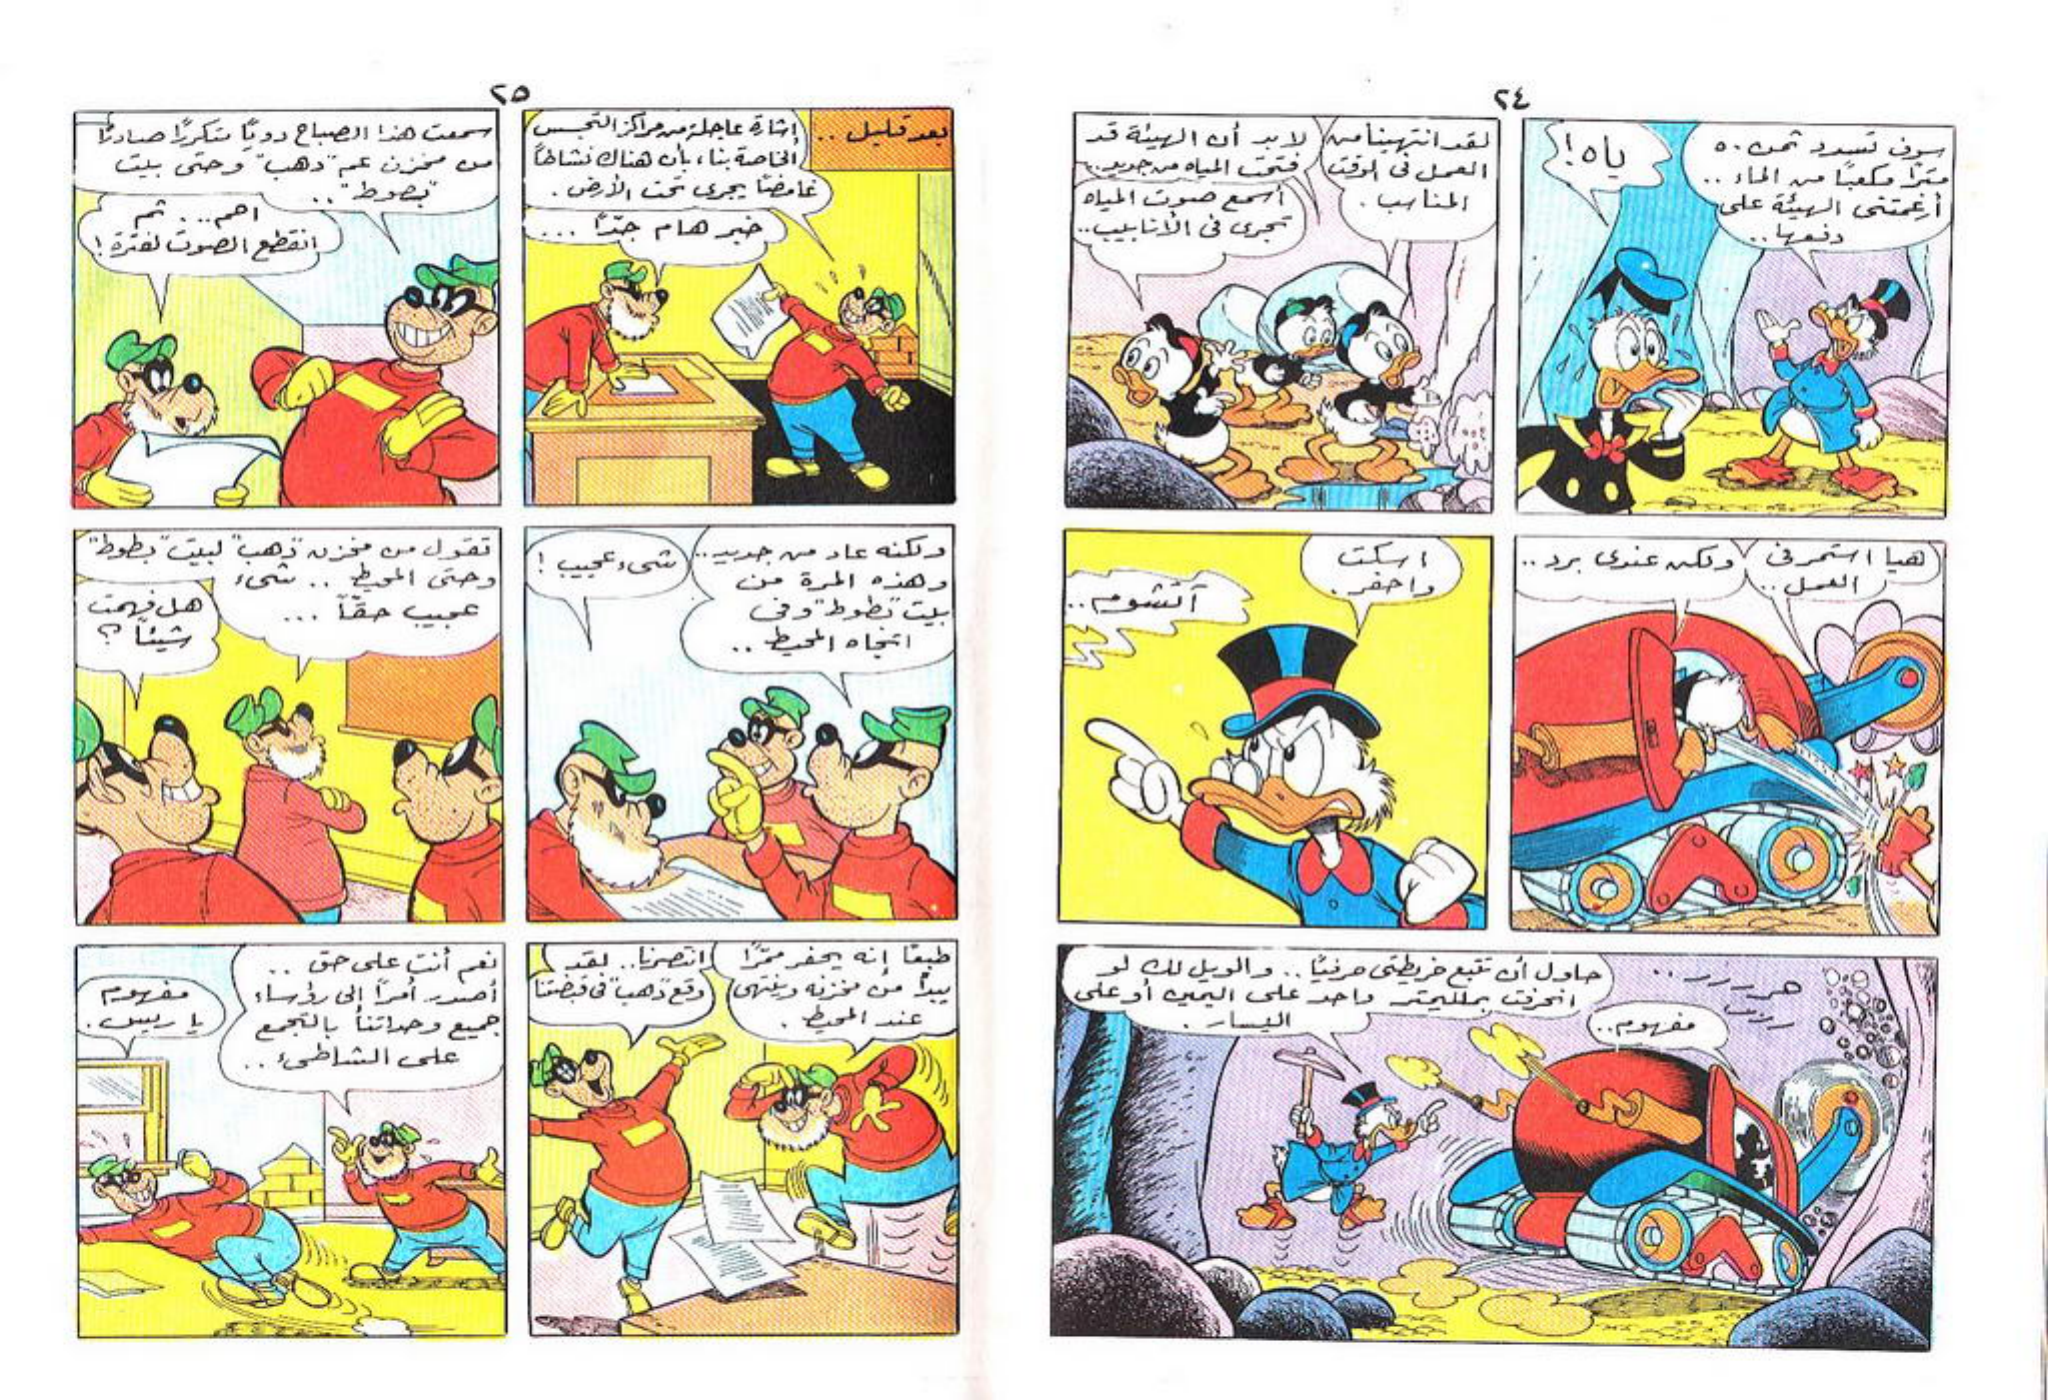 ٢٤
سوف تسدد ثمن ٥٠
مترًا مكعبًا من الماء ..
أرغمتني الهيئة على
دفعها ..
ياه !
لقد انتهينا من
العمل في الوقت
المناسب .
لابد أن الهيئة قد
فتحت المياه من جديد ..
أسمع صوت المياه
تجرى في الأنابيب ..
هيا استمر في
العمل ..
ولكن عندى برد ..
اسكت
واحفر .
آتشوم ..
هررررر ..
مفهوم ..
حاول أن تتبع خريطتى حرفيًا .. والويل لك لو
انحرفت بملليمتر واحد على اليمين أو على
اليسار .
٢٥
بعد قليل ..
إشارة عاجلة من مراكز التجسس
الخاصة بنا ، بأن هناك نشاطًا
غامضًا يجرى تحت الأرض .
خبر هام جدًا ...
سمعت هذا الصباح دويًا متكررًا صادرًا
من مخزن عم "دهب" وحتى بيت
"بطوط" ..
اهم ... ثم
انقطع الصوت لفترة !
ولكنه عاد من جديد ..
وهذه المرة من
بيت "بطوط" وفي
اتجاه المحيط ..
شىء عجيب !
تقول من مخزن "دهب" لبيت "بطوط"
وحتى المحيط .. شىء
عجيب حقًا ...
هل فهمت
شيئًا ؟
طبعًا إنه يحفر ممرًا
يبدأ من مخزنه وينتهى
عند المحيط .
انتصرنا .. لقد
وقع "دهب" في قبضتنا
نعم أنت على حق ..
أصدر أمرًا إلى رؤساء
جميع وحداتنا بالتجمع
على الشاطىء ..
مفهوم
يا ريس .